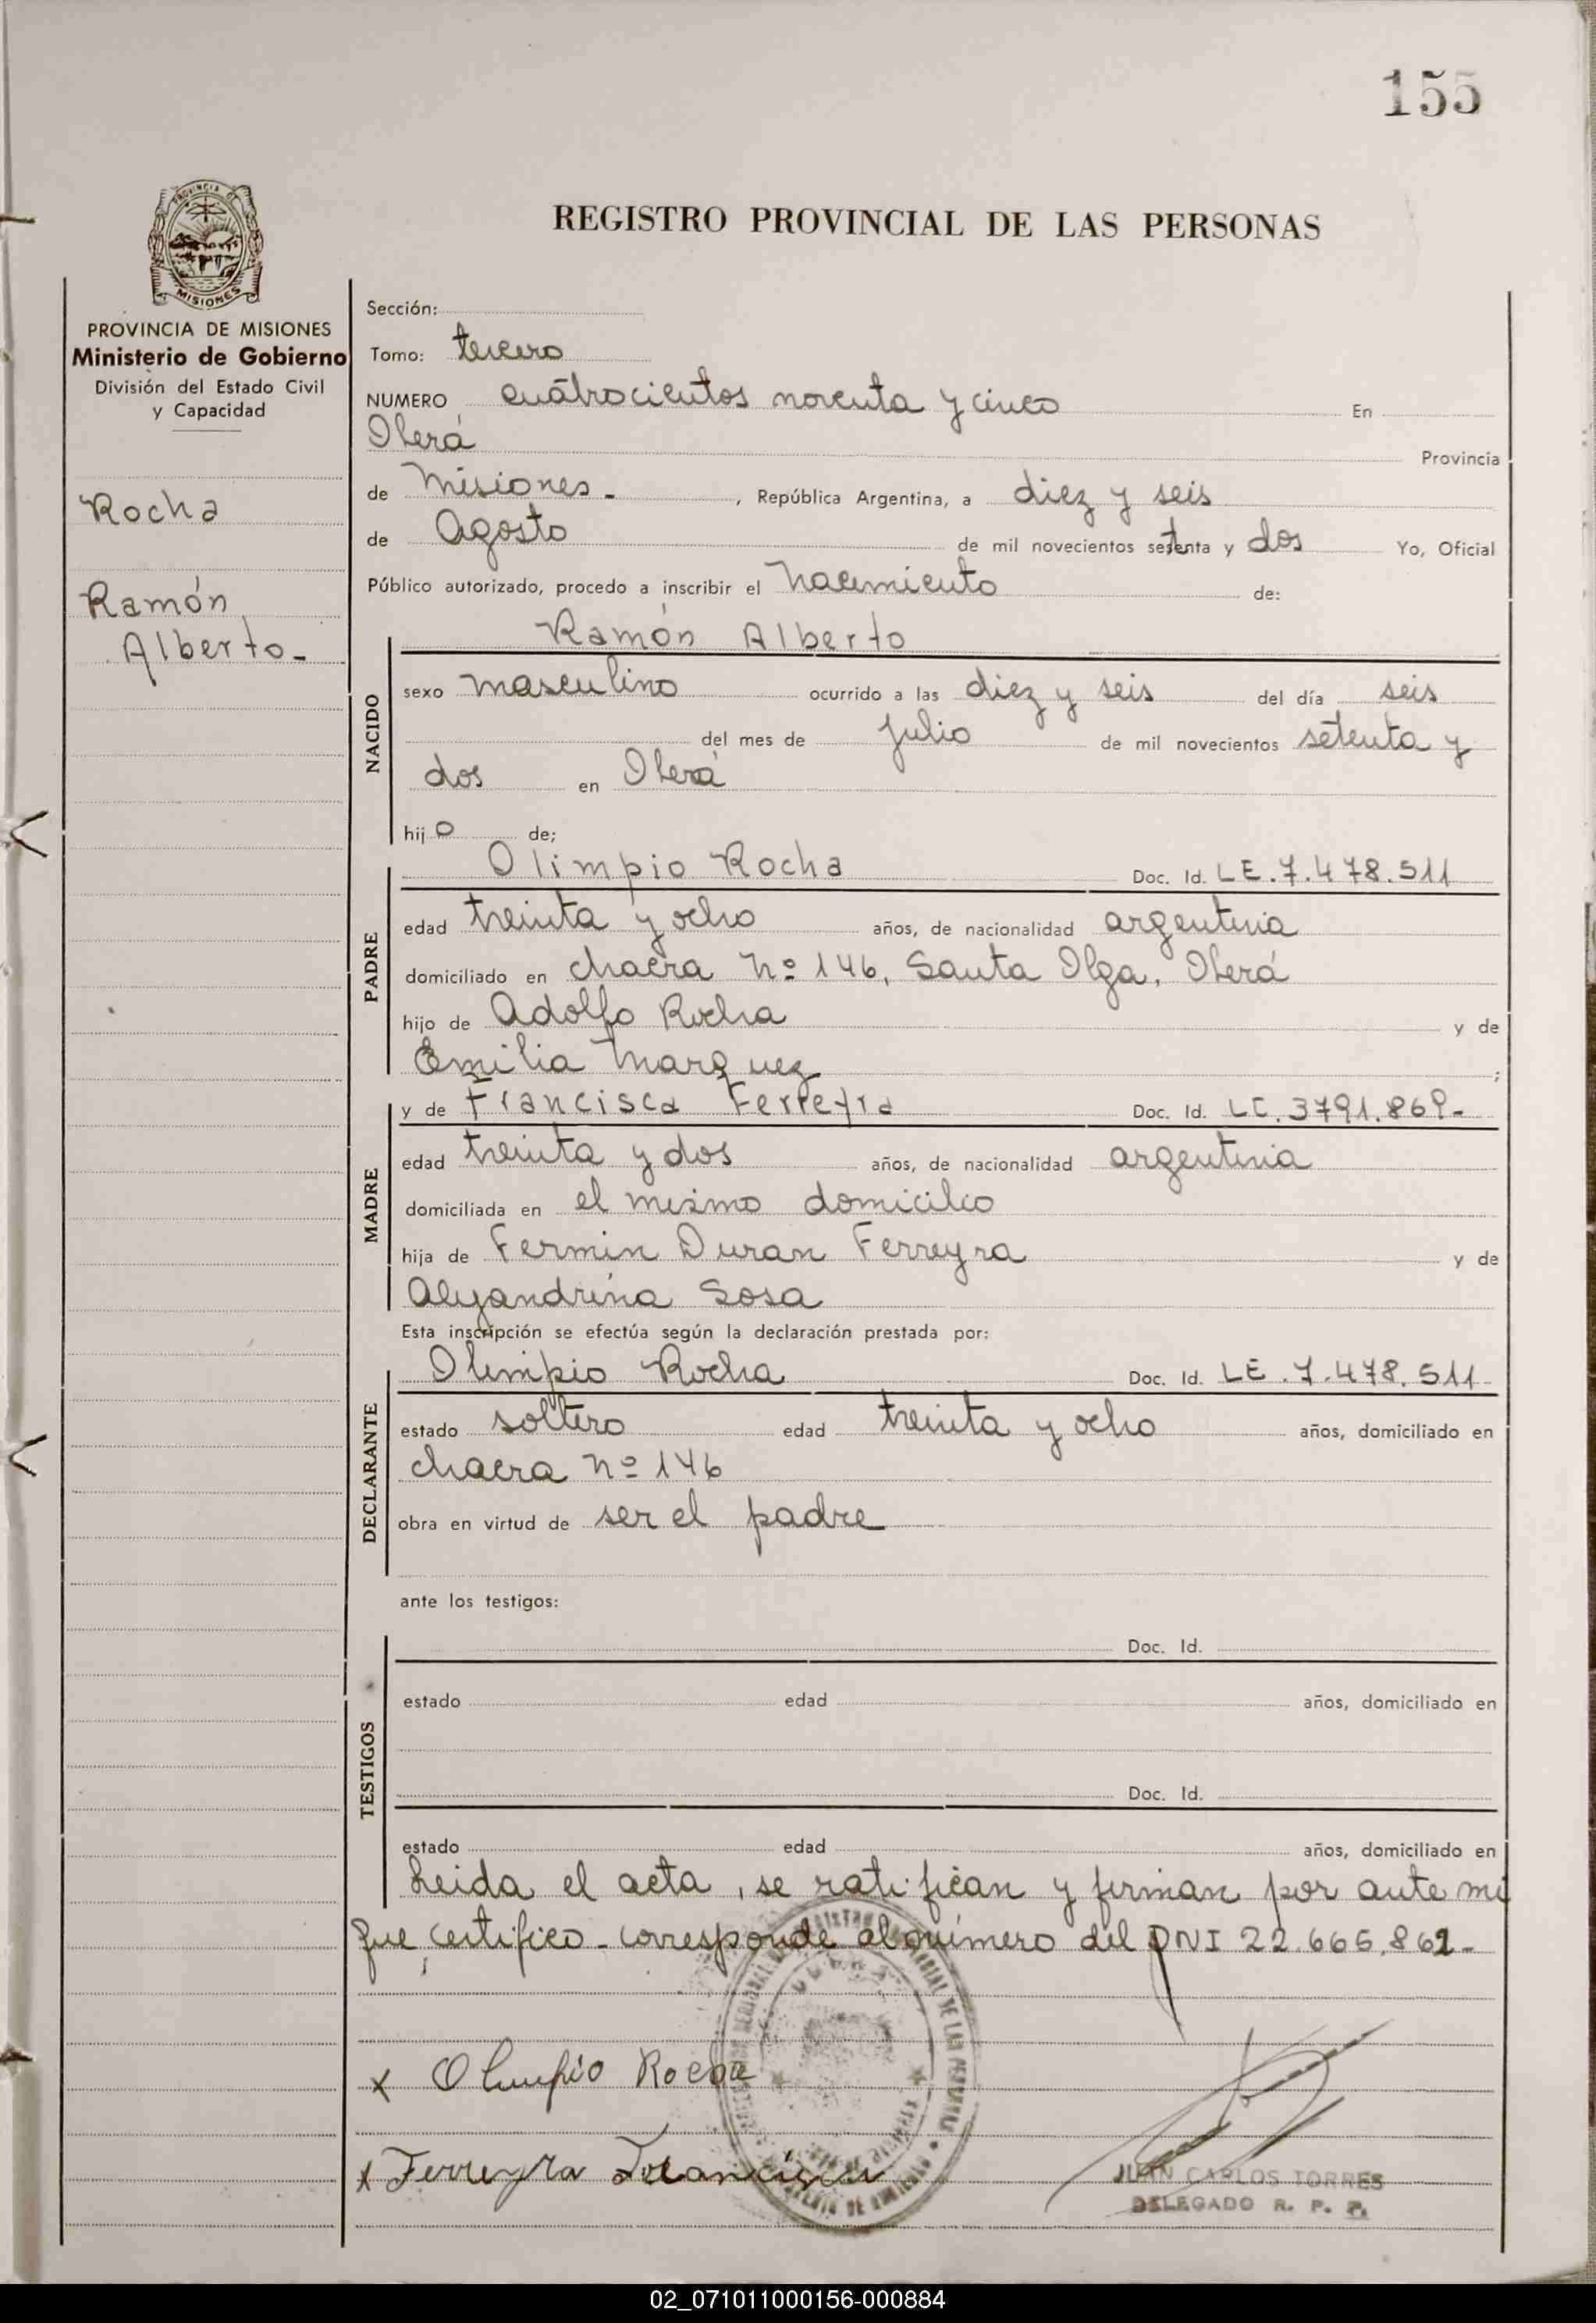 155
PROVINCIA DE
MISIONES
PROVINCIA DE MISIONES
Ministerio de Gobierno
División del Estado Civil
y Capacidad
Rocha
Ramón
Alberto-
REGISTRO PROVINCIAL DE LAS PERSONAS
Sección:
Tomo: tercero
NUMERO cuatrocientos noventa y cinco En
Oberá Provincia
de Misiones- , República Argentina, a diez y seis
de Agosto de mil novecientos setenta y dos Yo, Oficial
Público autorizado, procedo a inscribir el nacimiento de:
Ramón Alberto
NACIDO
sexo masculino ocurrido a las diez y seis del día seis
del mes de julio de mil novecientos setenta y
dos en Oberá
hijo de;
PADRE
Olimpio Rocha Doc. Id. LE.7.478.511
edad treinta y ocho años, de nacionalidad argentina
domiciliado en chacra Nº 146, Santa Olga, Oberá
hijo de Adolfo Rocha y de
Emilia Marquez ;
MADRE
y de Francisca Ferreyra Doc. Id. LC.3791.869-
edad treinta y dos años, de nacionalidad argentina
domiciliada en el mismo domicilio
hija de Fermin Duran Ferreyra y de
Alejandrina Sosa
Esta inscripción se efectúa según la declaración prestada por:
DECLARANTE
Olimpio Rocha Doc. Id. LE.7.478.511-
estado soltero edad treinta y ocho años, domiciliado en
chacra Nº 146
obra en virtud de ser el padre
ante los testigos:
TESTIGOS
Doc. Id.
estado edad años, domiciliado en
Doc. Id.
estado edad años, domiciliado en
Leida el acta, se ratifican y firman por ante mi
que certifico-corresponde al número del DNI 22.665.862-
x Olimpio Rocha
x Ferreyra Francisca
JUAN CARLOS TORRES
DELEGADO R. P. P.
02_071011000156-000884